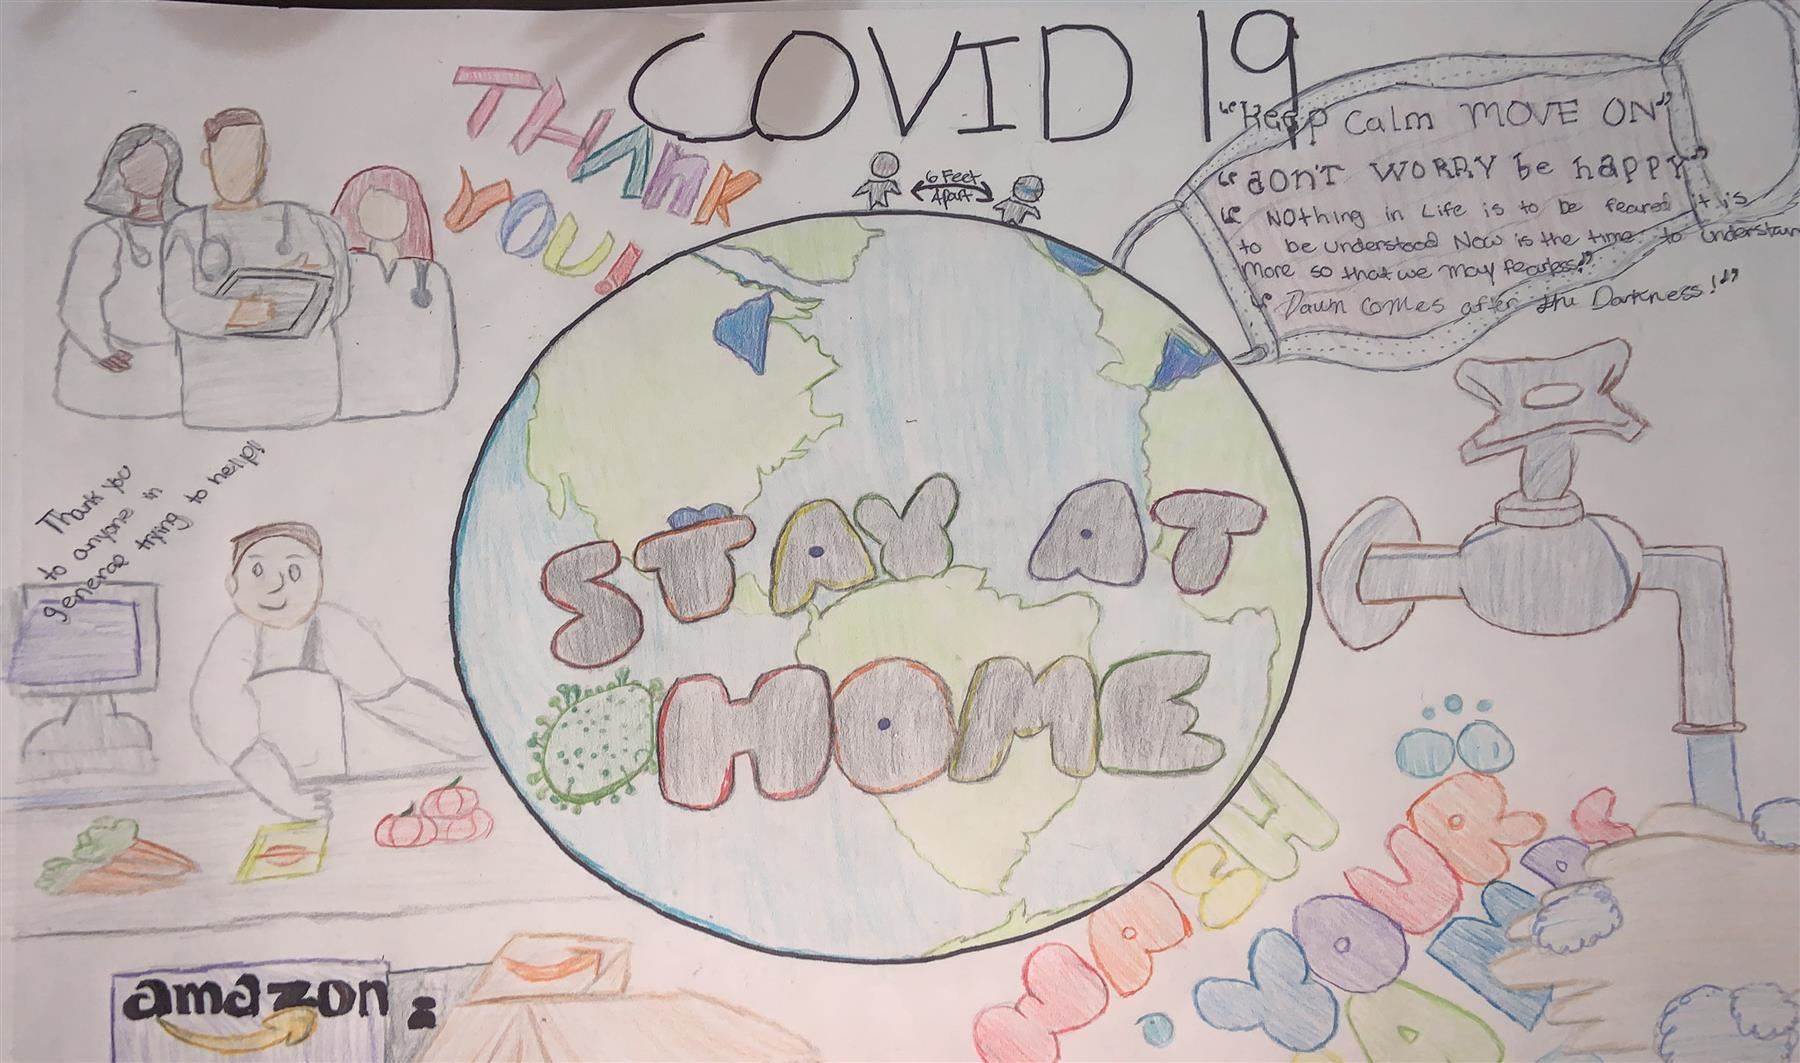 COVID 19
THANK
YOU!
6 Feet
Apart
"Keep Calm MOVE ON"
"dON'T WORRY be happy"
" Nothing in Life is to be feared it is
to be understood Now is the time to understand
More so that we may fearless."
" Dawn comes after the Darkness!"
Thank you
to anyone in
generao trying to help!!
STAY AT
HOME
WASH
YOUR
HANDS
amazon